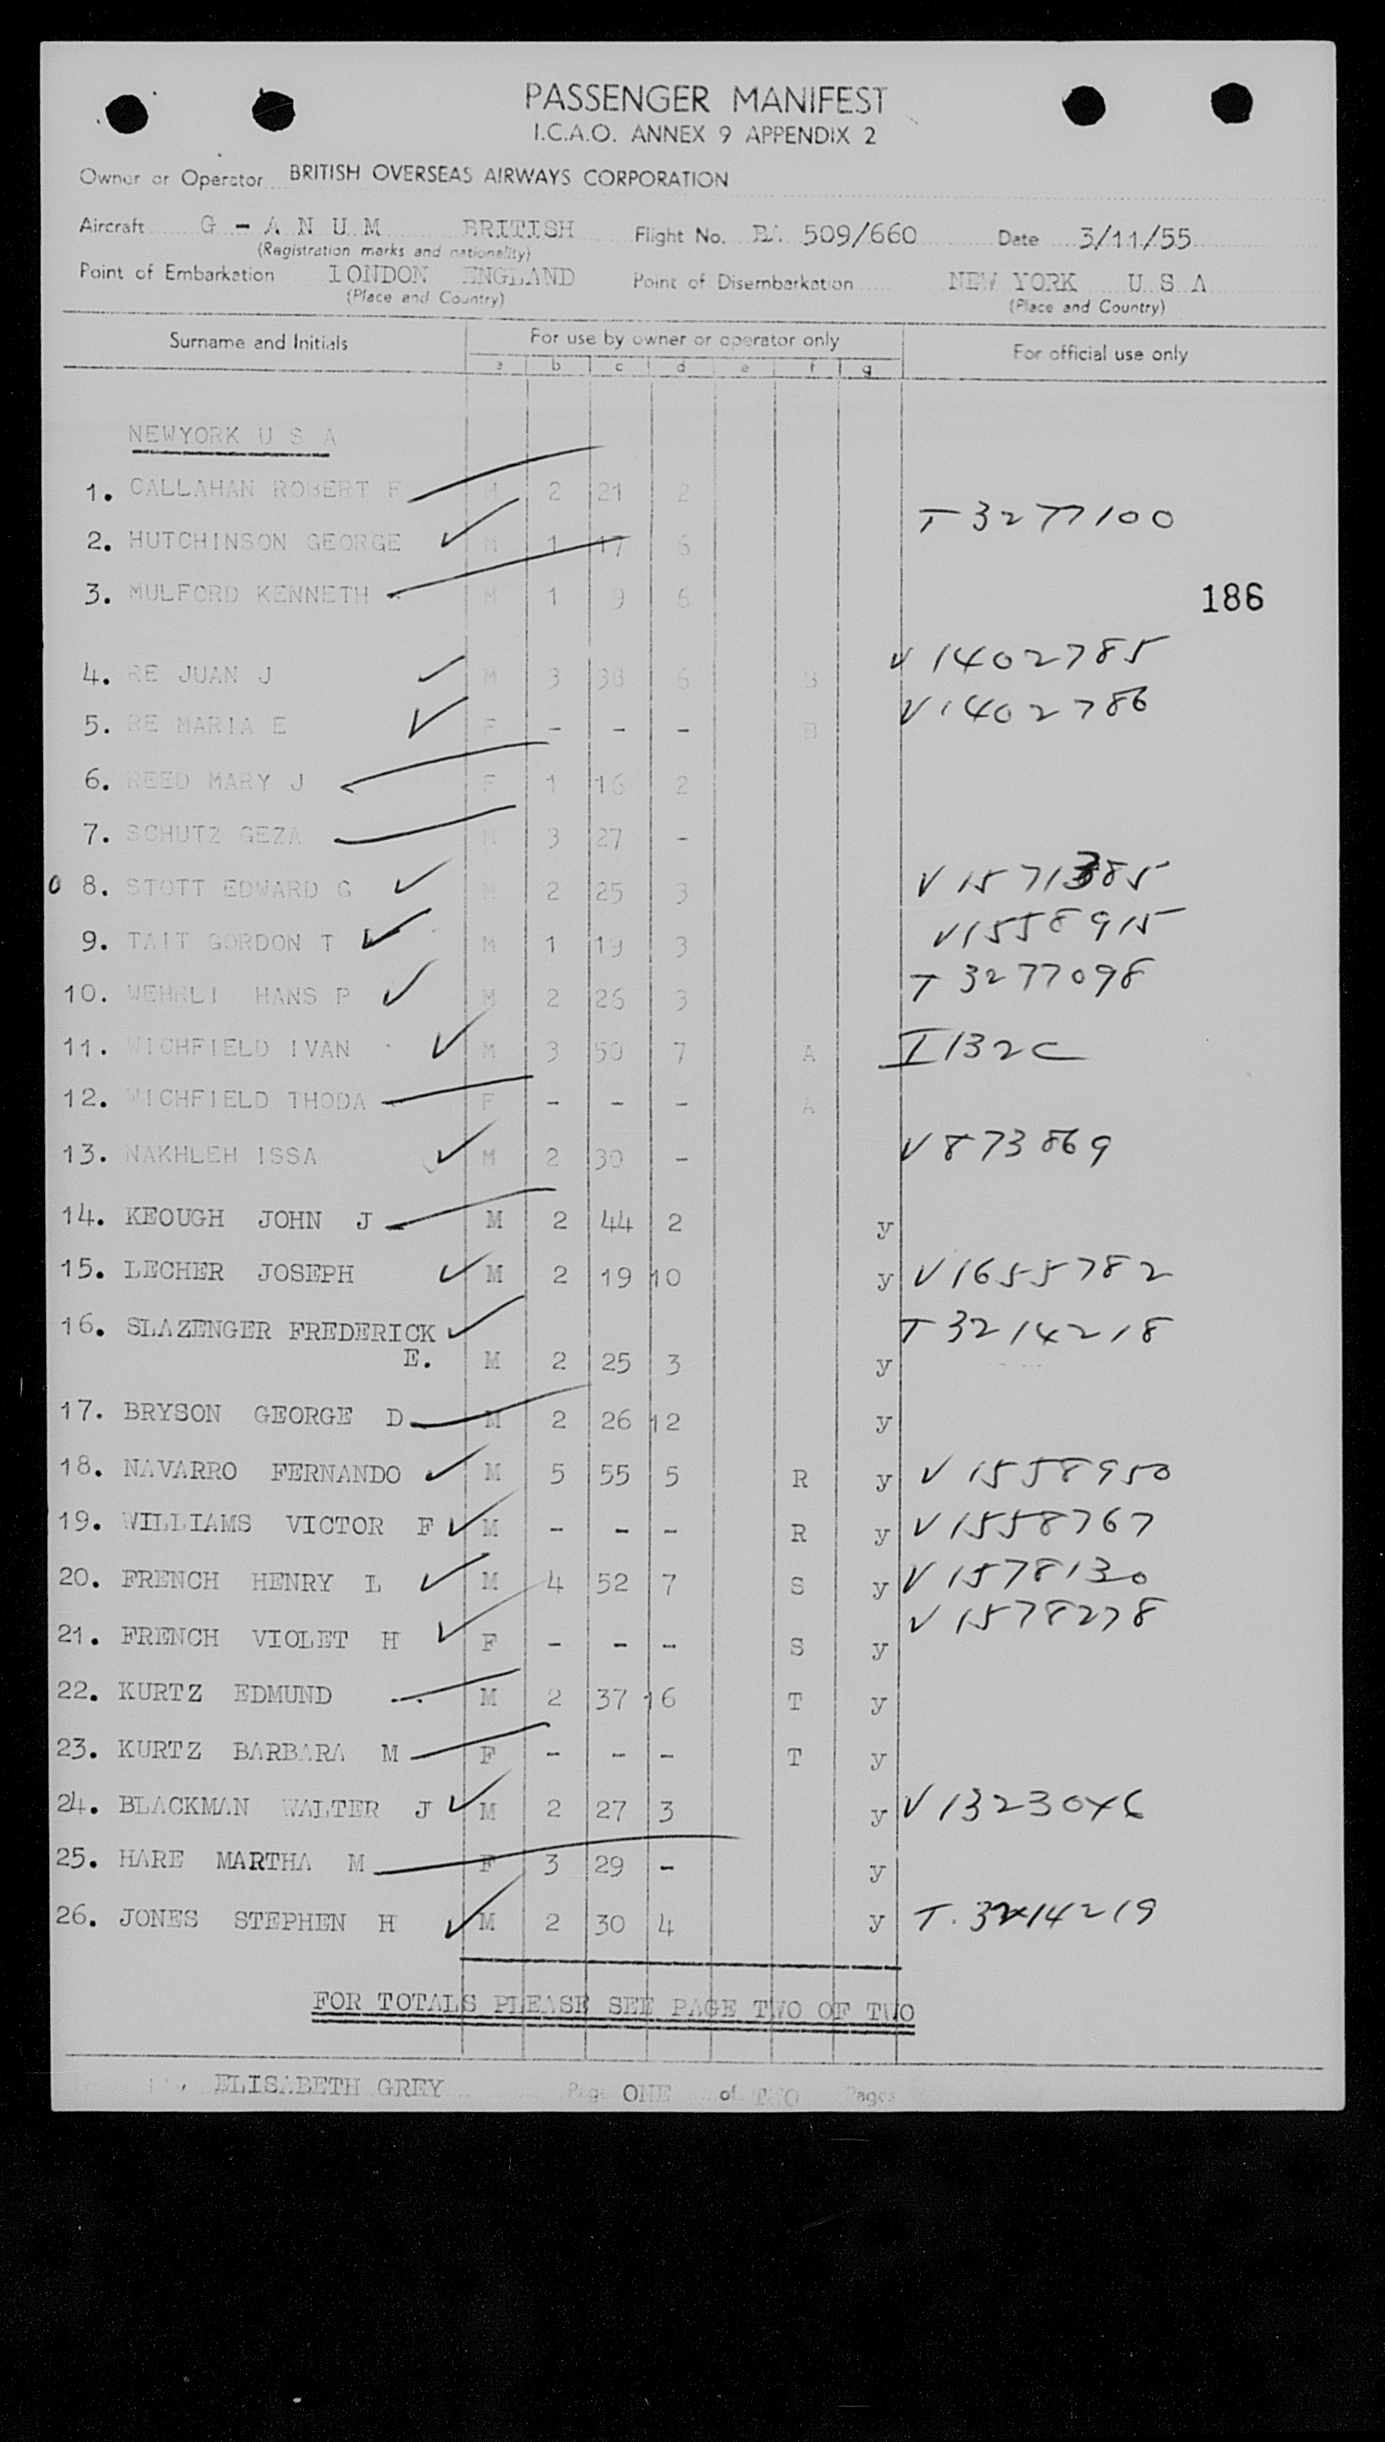 PASSENGER MANIFEST
I.C.A.O. ANNEX 9 APPENDIX 2
Owner or Operator BRITISH OVERSEAS AIRWAYS CORPORATION
Aircraft G - A N U M BRITISH Flight No. BA 509/660 Date 3/11/55
(Registration marks and nationality)
Point of Embarkation LONDON ENGLAND Point of Disembarkation NEW YORK U S A
(Place and Country) (Place and Country)
Surname and Initials For use by owner or operator only For official use only
a b c d e f g
NEWYORK U S A
1. CALLAHAN ROBERT F M 2 21 2
T 3277100
2. HUTCHINSON GEORGE M 1 17 6
3. MULFORD KENNETH M 1 9 6
186
4. RE JUAN J M 3 38 6 B V 1402785
5. RE MARIA E F - - - B V 1402786
6. REED MARY J F 1 16 2
7. SCHUTZ GEZA M 3 27 -
0 8. STOTT EDWARD G M 2 25 3 V 1571385
9. TAIT GORDON T M 1 19 3 V1558915
10. WEHRLI HANS P M 2 26 3 T 3277098
11. WICHFIELD IVAN M 3 50 7 A I132C
12. WICHFIELD THODA F - - - A
13. NAKHLEH ISSA M 2 30 - V873869
14. KEOUGH JOHN J M 2 44 2 y
15. LECHER JOSEPH M 2 19 10 y V1655782
16. SLAZENGER FREDERICK T 3214218
E. M 2 25 3 y
17. BRYSON GEORGE D M 2 26 12 y
18. NAVARRO FERNANDO M 5 55 5 R y V 1558950
19. WILLIAMS VICTOR F M - - - R y V1558767
20. FRENCH HENRY L M 4 52 7 S y V 1578130
21. FRENCH VIOLET H F - - - S y V 1578278
22. KURTZ EDMUND M 2 37 16 T y
23. KURTZ BARBARA M F - - - T y
24. BLACKMAN WALTER J M 2 27 3 y V 1323046
25. HARE MARTHA M F 3 29 - y
26. JONES STEPHEN H M 2 30 4 y T. 3214219
FOR TOTALS PLEASE SEE PAGE TWO OF TWO
ELISABETH GREY Page ONE of TWO Pages